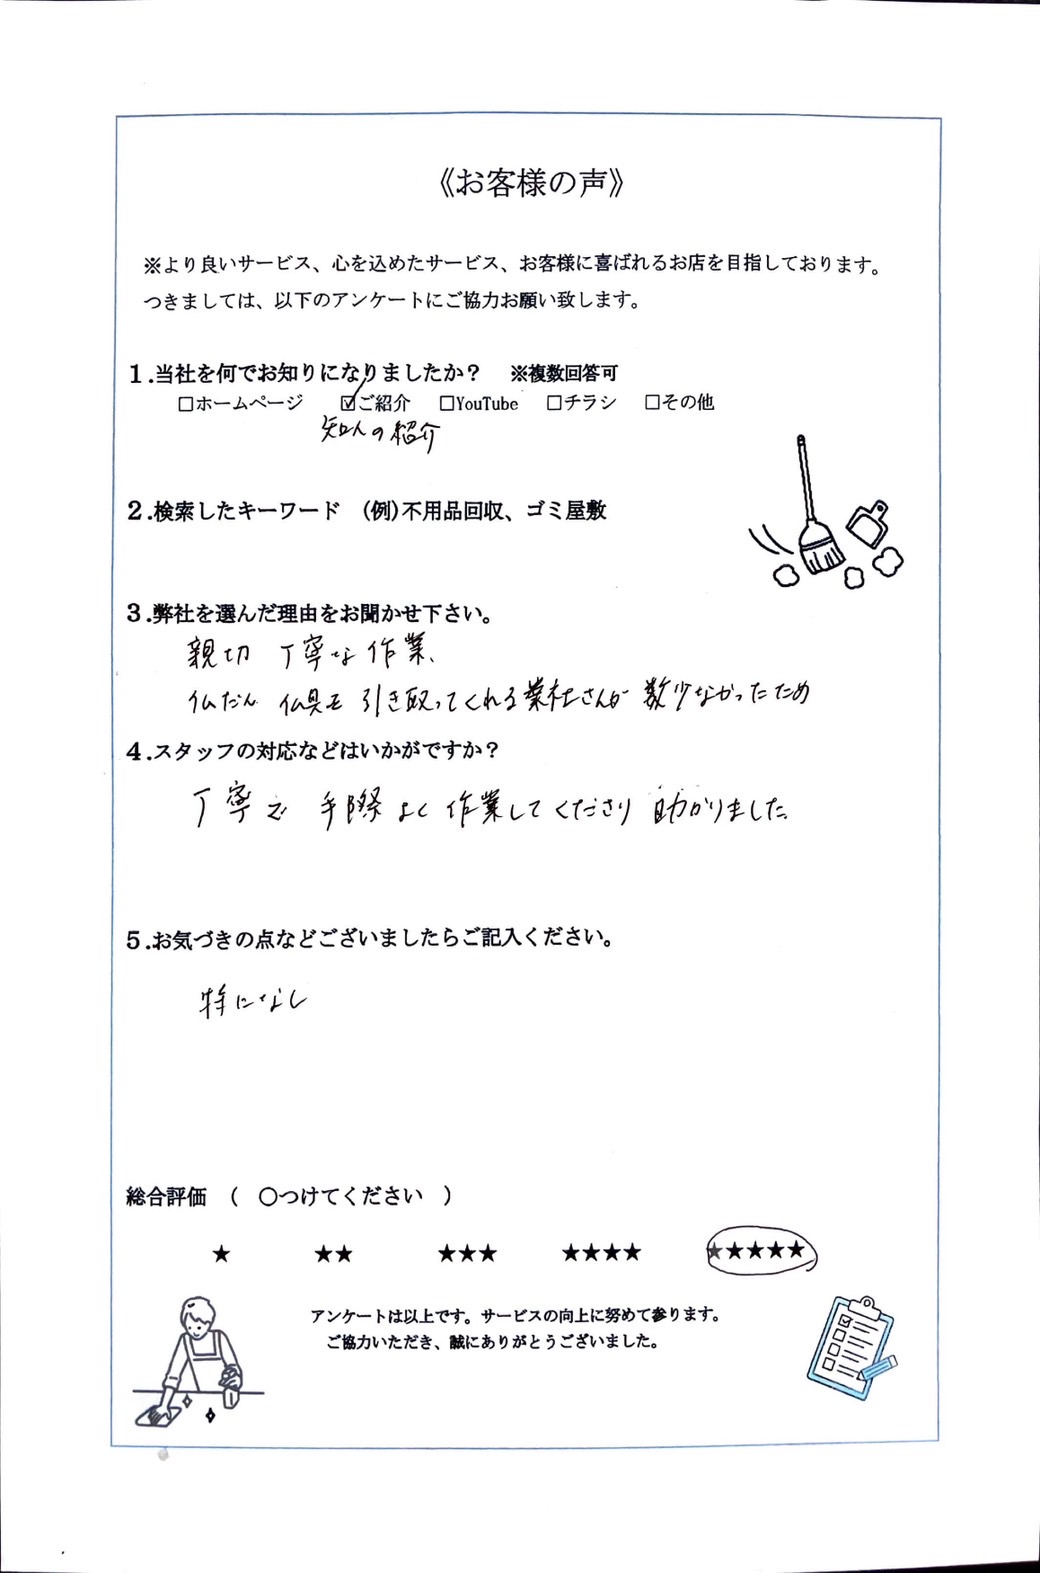 《お客様の声》
※より良いサービス、心を込めたサービス、お客様に喜ばれるお店を目指しております。
つきましては、以下のアンケートにご協力お願い致します。
1.当社を何でお知りになりましたか? ※複数回答可
□ホームページ ☑ご紹介 □YouTube □チラシ □その他
知人の紹介
2.検索したキーワード (例)不用品回収、ゴミ屋敷
3.弊社を選んだ理由をお聞かせ下さい。
親切 丁寧な作業、
仏だん 仏具を引き取ってくれる業社さんが数少なかったため
4.スタッフの対応などはいかがですか?
丁寧で 手際よく作業してくださり助かりました。
5.お気づきの点などございましたらご記入ください。
特になし
総合評価 ( ○つけてください )
★ ★★ ★★★ ★★★★ ★★★★★
アンケートは以上です。サービスの向上に努めて参ります。
ご協力いただき、誠にありがとうございました。